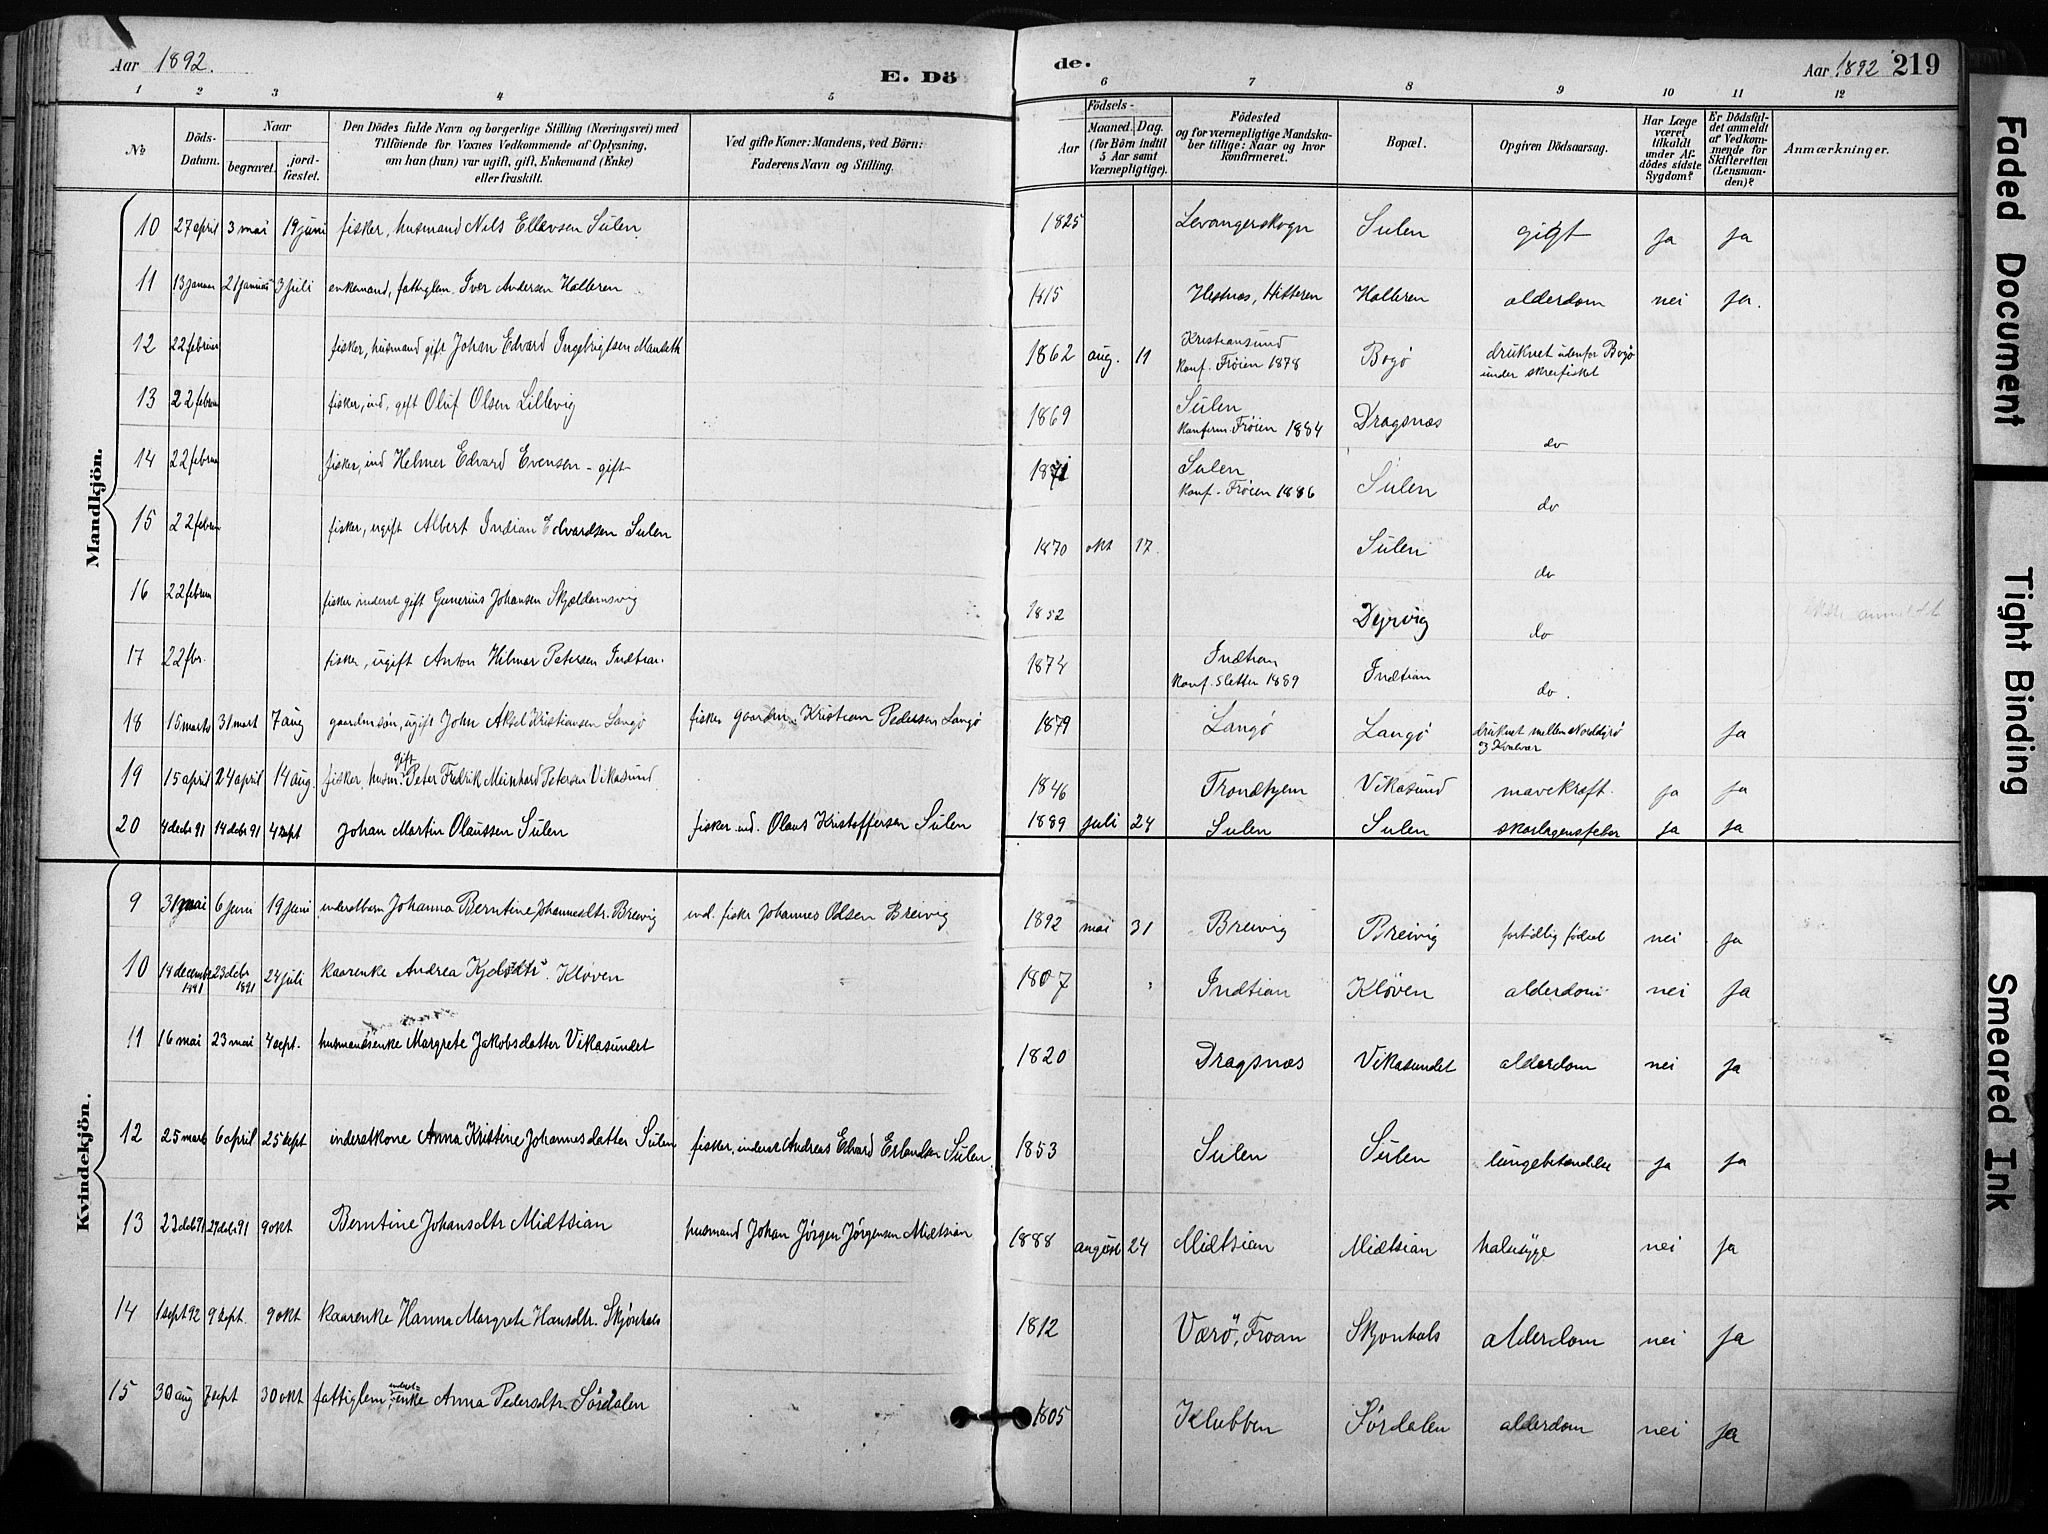 Aar 1892.
E. Dö
de.
Aar 1892
219
1 2 3 4 5 6 7 8 9 10 11 12
No
Döds-Datum.
Naar
begravet.
jord-fæstet.
Den Dödes fulde Navn og borgerlige Stilling (Næringsvei) med
Tilföiende for Voxnes Vedkommende af Oplysning,
om han (hun) var ugift, gift, Enkemand (Enke)
eller fraskilt.
Ved gifte Koner: Mandens, ved Börn:
Faderens Navn og Stilling.
Födsels-
Aar
Maaned. Dag.
(for Börn indtil
5 Aar samt
Værnepligtige).
Födested
og for værnepligtige Mandska-
ber tillige: Naar og hvor
konfirmeret.
Bopæl.
Opgiven Dödsaarsag.
Har Læge
været
tilkaldt
under Af-
dödes sidste
Sygdom?
Er Dödsfal-
det anmeldt
af Vedkom-
mende for
Skifteretten
(Lensman-
den)?
Anmærkninger.
Mandkjön.
10 27 april 3 mai 19 juni fisker, husmand Nils Ellevsen Sulen 1825 Levangerskogn Sulen gigt ja ja
11 13 januar 21 januar 3 juli enkemand, fattiglem. Iver Andersen Holleren 1815 Hestnæs, Hitteren Holleren alderdom nei ja.
12 22 februar fisker, husmand gift Johan Edvard Ingebrigtsen 1862 aug. 11 Kristiansund
konf. Frøien 1878 Bogø druknet udenfor Bogø
under skreifisket
13 22 februar fisker, ind, gift Oluf Olsen Lillevig 1869 Sulen
konfirm. Frøien 1884 Dragsnæs do
14 22 februar fisker, ind Helmer Edvard Evensen - gift 1871 Sulen
konf. Frøien 1886 Sulen do
15 22 februar fisker, ugift Albert Indian Edvardsen Sulen 1870 okt 17. Sulen do
16 22 februar fisker inderst gift Gunerius Johansen Skjældamsvig 1852 Dyrvig do
17 22 fbr. fisker, ugift Anton Hilmar Petersen Indtian. 1874 Indtian
konf. Sletten 1889 Indtian do.
18 15 marts 31 mart 7 aug gaardmsøn, ugift John Aksel Kristiansen Langø fisker gaardm. Kristian Pedersen Langø 1879 Langø Langø druknet mellem Norddyrø
og Kvalvær ja
19 15 april 24 april 14 aug. fisker, husm. gift Peter Fredrik Meinhard Petersen Vikasund 1846 Trondhjem Vikasund mavekræft. ja ja
20 4 decbr 91 14 decbr 91 4 sept Johan Martin Olaussen Sulen fisker ind. Olaus Kristoffersen Sulen 1889 juli 24 Sulen Sulen skarlagensfeber ja ja
Kvindekjön.
9 31 mai 6 juni 19 juni inderstbarn Johanna Berntine Johannesdtr. Breivig ind. fisker Johannes Olsen Breivig 1892 mai 31 Breivig Breivig fortidlig fødsel nei ja
10 14 decembr 1891 23 decbr 1891 24 juli kaarenke Andrea Kløven 1807 Indtian Kløven alderdom nei ja
11 16 mai 23 mai 4 sept. husmandsenke Margrete Jakobsdatter Vikasundet 1820 Dragsnæs Vikasundet alderdom nei ja
12 25 mars 6 april 25 sept inderstkone Anna Kristine Johannesdatter Sulen fisker, inderst Andreas Edvard Erlandsen Sulen 1853 Sulen Sulen lungebetændelse ja ja
13 23 decbr 91 27 decbr 91 9 okt Berntine Johansdtr Midtsian husmand Johan Jørgen Jørgensen Midtsian 1888 august 24 Midtsian Midtsian halssyge nei ja
14 1 sept 92 9 sept. 9 okt kaarenke Hanna Margrete Hansdtr. Skjønhals 1812 Værø, Froan Skjønhals alderdom nei ja
15 30 aug 7 sept 30 okt fattiglem, inderst-enke Anna Pedersdtr. Sørdalen 1805 Klubben Sørdalen alderdom nei ja
Faded Document
Tight Binding
Smeared Ink